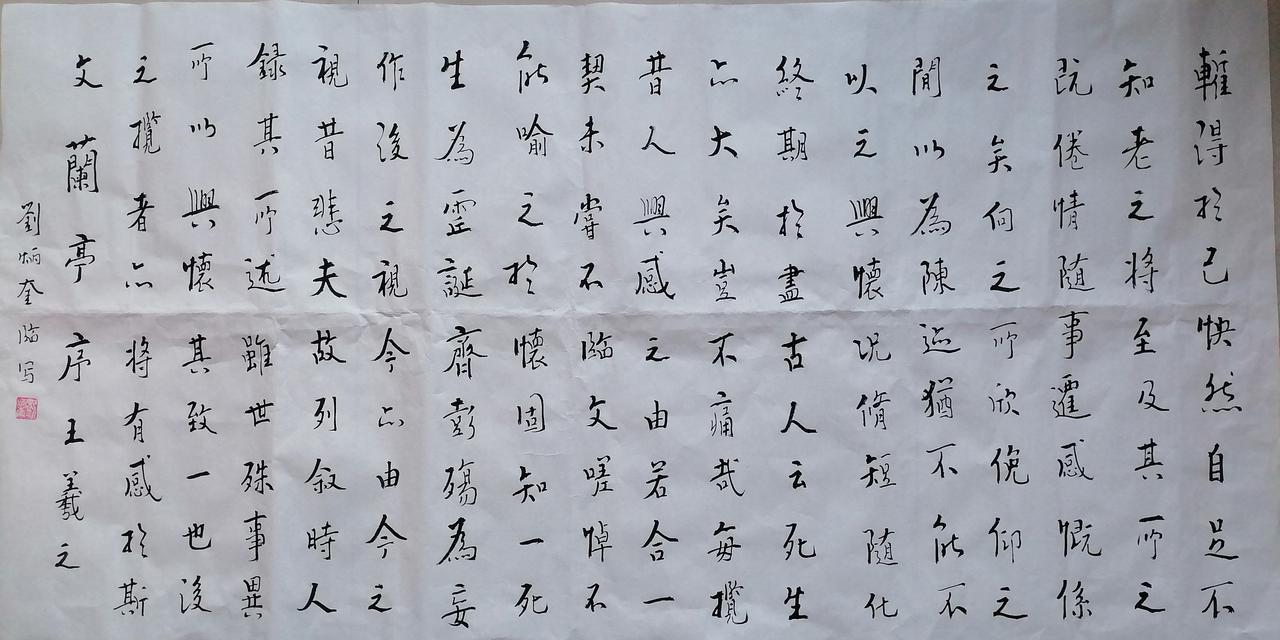 暫得於己快然自足不
知老之將至及其所之
既倦情随事遷感慨係
之矣向之所欣俛仰之
間以為陳迹猶不能不
以之興懷況脩短隨化
終期於盡古人云死生
亦大矣豈不痛哉每攬
昔人興感之由若合一
契未嘗不臨文嗟悼不
能喻之於懷固知一死
生為虛誕齊彭殤為妄
作後之視今亦由今之
視昔悲夫故列叙時人
録其所述雖世殊事異
所以興懷其致一也後
之攬者亦將有感於斯
文 蘭亭序王羲之
劉炳奎臨写